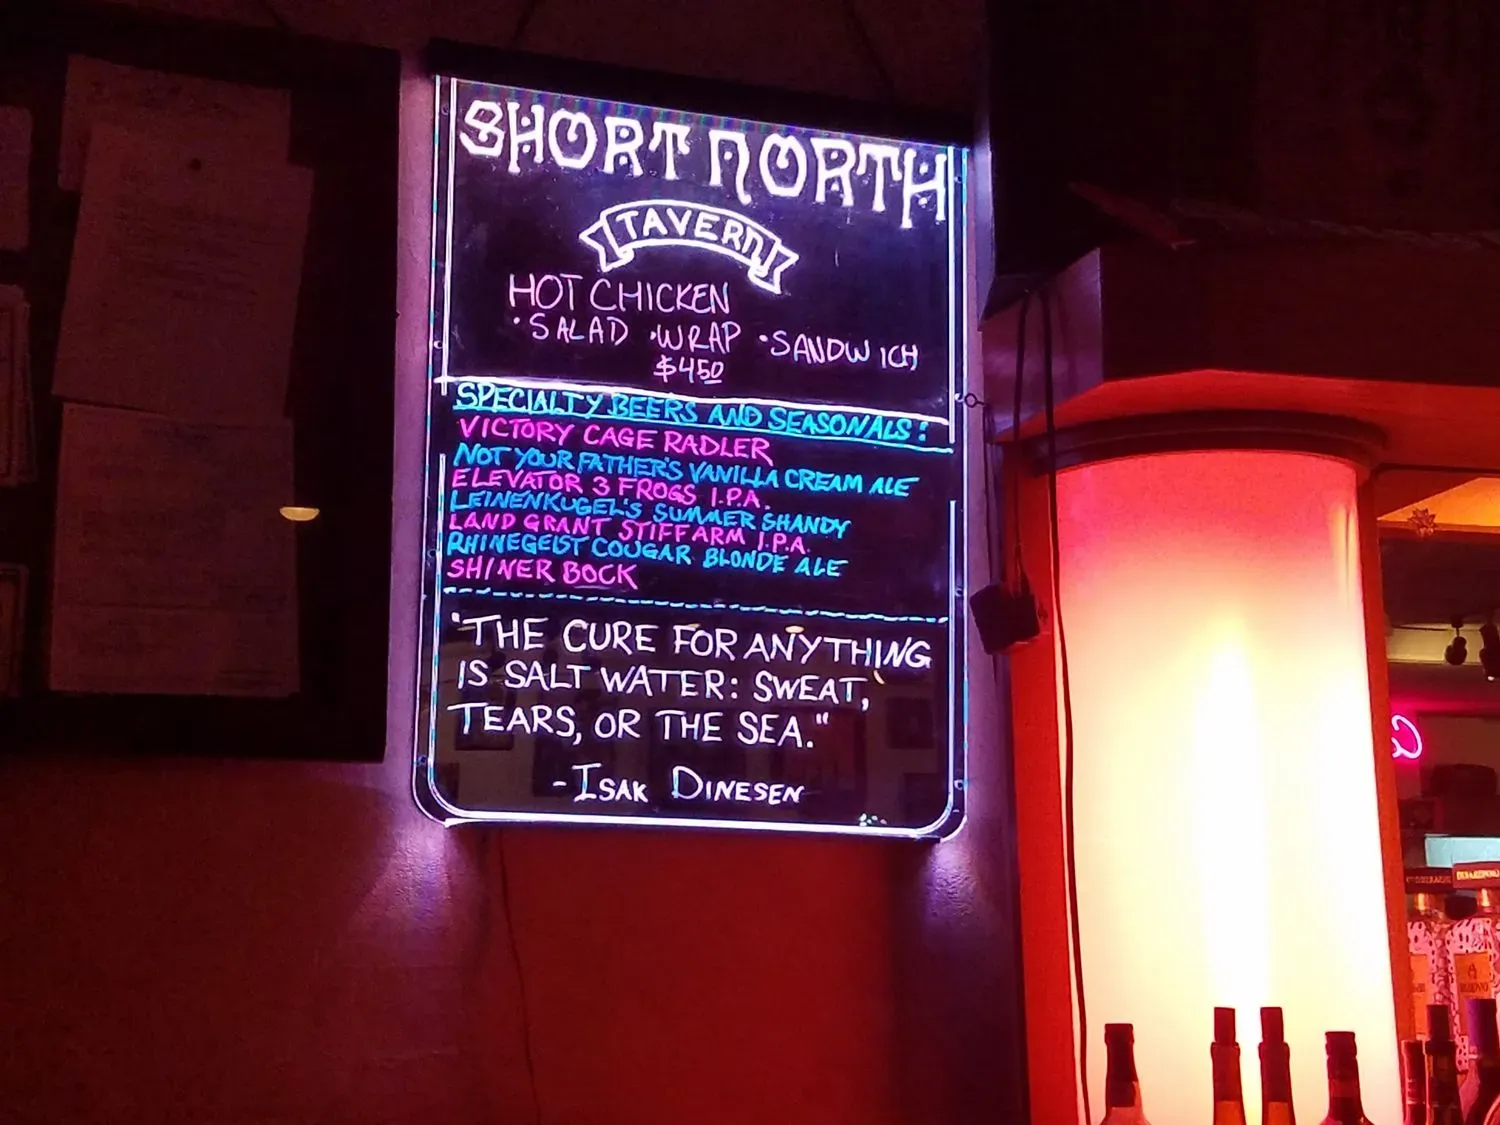 SHORT NORTH
TAVERN
HOT CHICKEN
•SALAD •WRAP •SANDWICH
$4.50
SPECIALTY BEERS AND SEASONALS:
VICTORY CAGE RADLER
NOT YOUR FATHERS VANILLA CREAM ALE
ELEVATOR 3 FROGS I.P.A.
LEINENKUGEL'S SUMMER SHANDY
LAND GRANT STIFF ARM I.P.A.
RHINEGEIST COUGAR BLONDE ALE
SHINER BOCK
"THE CURE FOR ANYTHING
IS SALT WATER: SWEAT,
TEARS, OR THE SEA."
-ISAK DINESEN